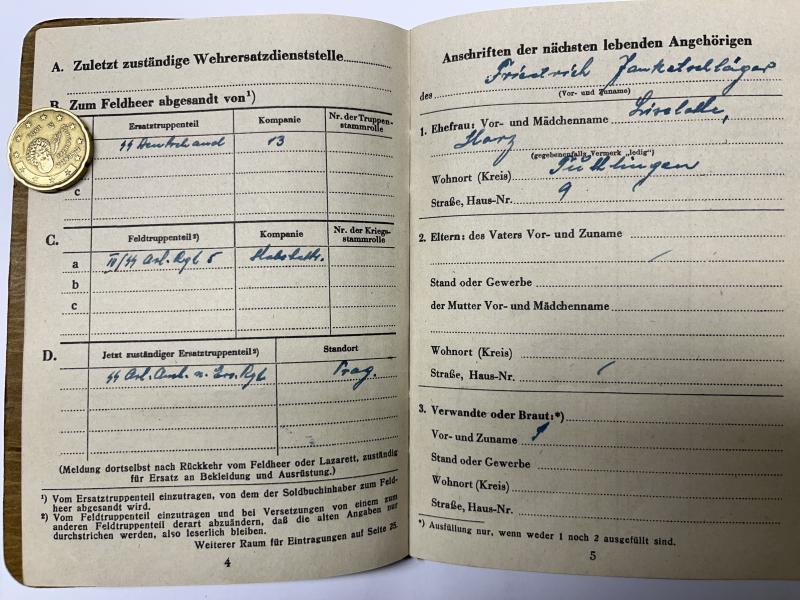 A. Zuletzt zuständige Wehrersatzdienststelle
B. Zum Feldheer abgesandt von¹)
Ersatztruppenteil
Kompanie
Nr. der Truppenstammrolle
SS Deutschand
13
c
C.
Feldtruppenteil²)
Kompanie
Nr. der Kriegsstammrolle
a
IV/SS Art. Rgt. 5
Stabsbattr.
b
c
D.
Jetzt zuständiger Ersatztruppenteil²)
Standort
SS Art. Ausb. u. Ers. Rgt.
Prag.
(Meldung dortselbst nach Rückkehr vom Feldheer oder Lazarett, zuständig
für Ersatz an Bekleidung und Ausrüstung.)
¹) Vom Ersatztruppenteil einzutragen, von dem der Soldbuchinhaber zum Feld-
heer abgesandt wird.
²) Vom Feldtruppenteil einzutragen und bei Versetzungen von einem zum
anderen Feldtruppenteil derart abzuändern, daß die alten Angaben nur
durchstrichen werden, also leserlich bleiben.
Weiterer Raum für Eintragungen auf Seite 25.
4
Anschriften der nächsten lebenden Angehörigen
des Friedrich
(Vor- und Zuname)
1. Ehefrau: Vor- und Mädchenname
Harz
(gegebenenfalls Vermerk „ledig")
Wohnort (Kreis)
Straße, Haus-Nr. 9
2. Eltern: des Vaters Vor- und Zuname
Stand oder Gewerbe
der Mutter Vor- und Mädchenname
Wohnort (Kreis)
Straße, Haus-Nr.
3. Verwandte oder Braut:*)
Vor- und Zuname
Stand oder Gewerbe
Wohnort (Kreis)
Straße, Haus-Nr.
*) Ausfüllung nur, wenn weder 1 noch 2 ausgefüllt sind.
5